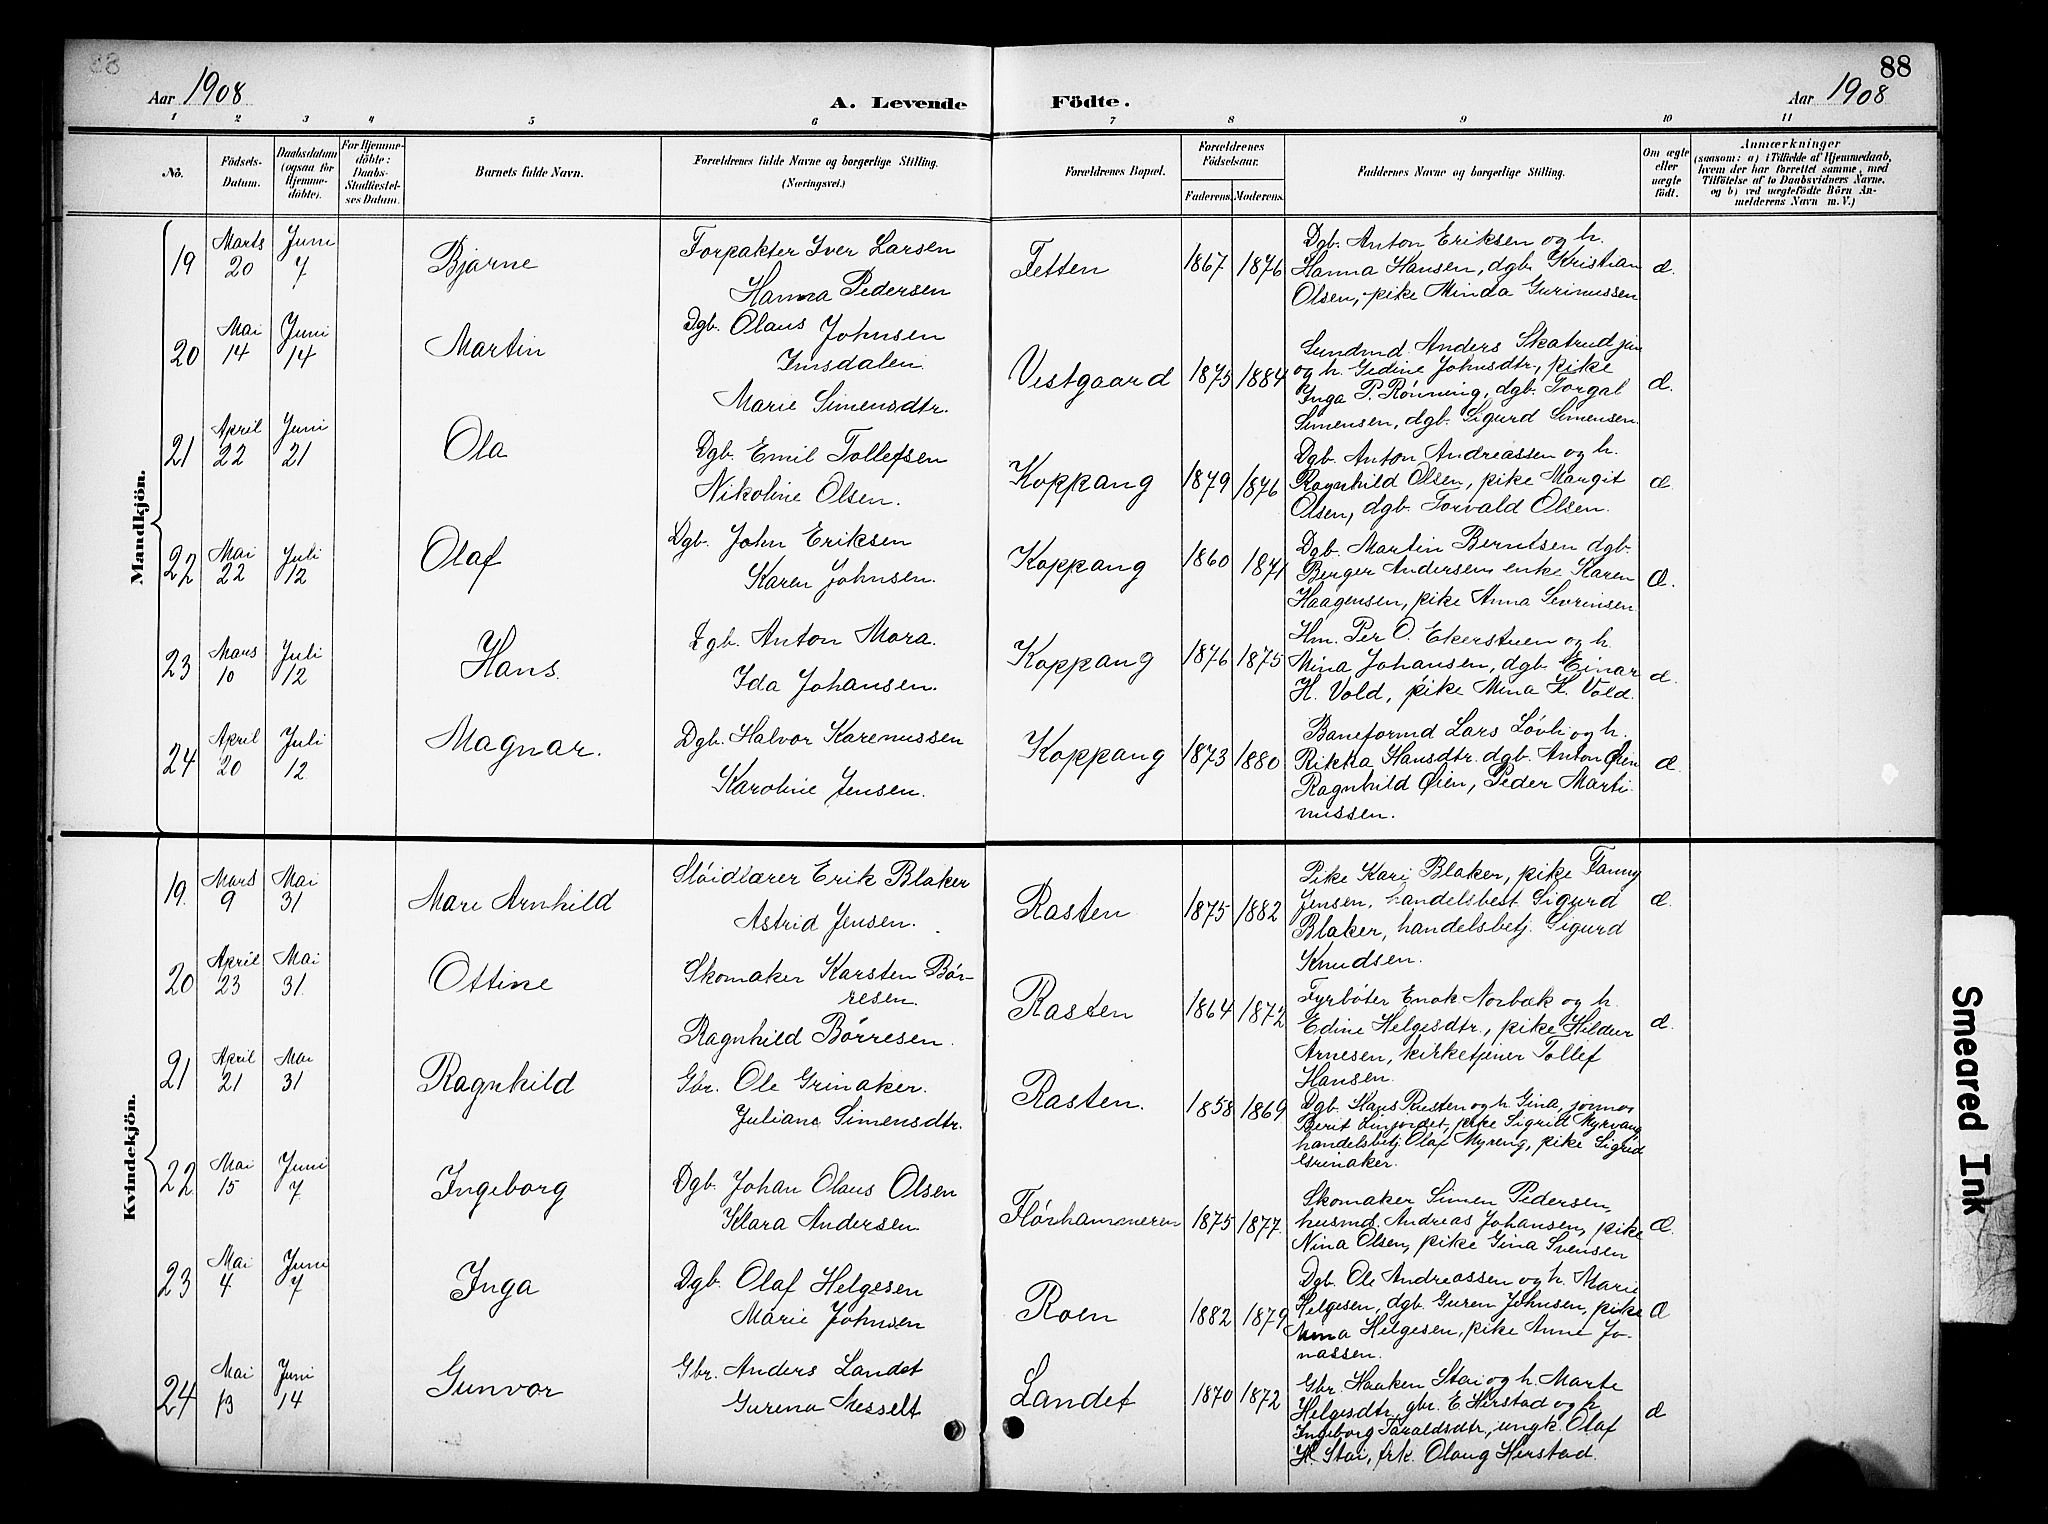 88
88
Aar 1908
A. Levende Födte.
Aar 1908
1 2 3 4 5 6 7 8 9 10 11
No.
Födsels-
Datum.
Daabsdatum
(ogsaa for
Hjemme-
döbte).
For Hjemme-
döbte:
Daabs-
Stadfæstel-
ses Datum.
Barnets fulde Navn.
Forældrenes fulde Navne og borgerlige Stilling.
(Næringsvei.)
Forældrenes Bopæl.
Forældrenes
Födselsaar.
Faderens. Moderens.
Faddernes Navne og borgerlige Stilling.
Om ægte
eller
uægte
födt.
Anmærkninger
(saasom: a) i Tilfælde af Hjemmedaab,
hvem der har forrettet samme, med
Tilföielse af to Daabsvidners Navne,
og b) ved uægtefödte Börn An-
melderens Navn m. V.)
Mandkjön.
19 Marts 20 Juni 7 Bjarne
Forpakter Iver Larsen
Hanna Pedersen
Tetten 1867 1876
Dgb. Anton Eriksen og h.
Hanna Hansen, dgb. Kristian
Olsen, pike Minda Gurinussen
æ.
20 Mai 14 Juni 14 Martin
Dgb. Olaus Johnsen
Imsdalen
Marie Simensdtr.
Vestgaard 1875 1884
Anders Skatrud jun
og h. Gedine Johnsdtr, pike
Inga P. Rønning, dgb. Torgal
Simensen, dgb. Sigurd Simensen.
æ.
21 April 22 Juni 21 Ola
Dgb. Emil Tollefsen
Nikoline Olsen.
Koppang 1879 1876
Dgb. Anton Andreassen og h.
Ragnhild Olsen, pike Margit
Olsen, dgb. Torvald Olsen.
æ.
22 Mai 22 Juli 12 Olaf
Dgb. John Eriksen
Karen Johnsen.
Koppang 1860 1871
Dgb. Martin Berntsen dgb.
Berger Andersen, enke Karen
Haagensen, pike Anna Sevrinsen
æ.
23 Mars 10 Juli 12 Hans.
Dgb. Anton Mora.
Ida Johansen.
Koppang 1876 1875
Hm. Per O. Ekerstuen og h.
Mina Johansen, dgb. Einar
H. Vold, pike Mina H. Vold.
æ.
24 April 20 Juli 12 Magnar.
Dgb. Halvor Karenussen
Karoline Jensen.
Koppang 1873 1880
Baneformd Lars Løvli og h.
Rikka Hansdtr. dgb. Anton Øien
Ragnhild Øien, Peder Marti-
nussen.
æ.
Kvindekjön.
19. Mars 9 Mai 31 Mari Arnhild
Sløidlærer Erik Blaker
Astrid Jensen.
Rasten 1875 1882
Pike Kari Blaker, pike Fanny
Jensen, handelsbest. Sigurd
Blaker, handelsbetj. Sigurd
Knudsen.
æ.
20 April 23 Mai 31. Ottine
Skomaker Karsten Bør-
resen.
Ragnhild Børresen.
Rasten 1864 1872
Fyrbøter Enok Norbæk og h.
Edine Helgesdtr., pike Hildur
Arnesen, kirketjener Tollef
Hansen.
æ.
21 April 21 Mai 31 Ragnhild
Gbr. Ole Grinaker.
Juliane Simensdtr.
Rasten. 1858 1869
Dgb. Hans Rusten og h. Gina, jormor
Berit, pike Sigrid Myrvang
handelsbetj. Olaf Myreng, pike Sigrid
Grinaker.
22 Mai 15 Juni 7 Ingeborg
Dgb. Johan Olaus Olsen
Klara Andersen.
Flørhammeren 1875 1877.
Skomaker Simen Pedersen,
husmd. Andreas Johansen, pike
Nina Olsen, pike Gina Svensen
æ.
23 Mai 4 Juni 7 Inga
Dgb. Olaf Helgesen
Marie Johnsen
Roen 1882 1879
Dgb. Ole Andreassen og h. Marie
Helgesen, dgb. Guren Johnsen, pike
Helgesen, pike Anne Jo-
nassen.
æ
24 Mai 13 Juni 14 Gunvor
Gbr. Anders Landet
Gurena Messelt
Landet 1870 1872
Gbr. Haaken Stai og h. Marte
Helgesdtr, gbr. E. Herstad og h
Ingeborg Taraldsdtr, ungk. Olaf
H. Stai, frk. Olaug Herstad.
æ
Smeared Ink